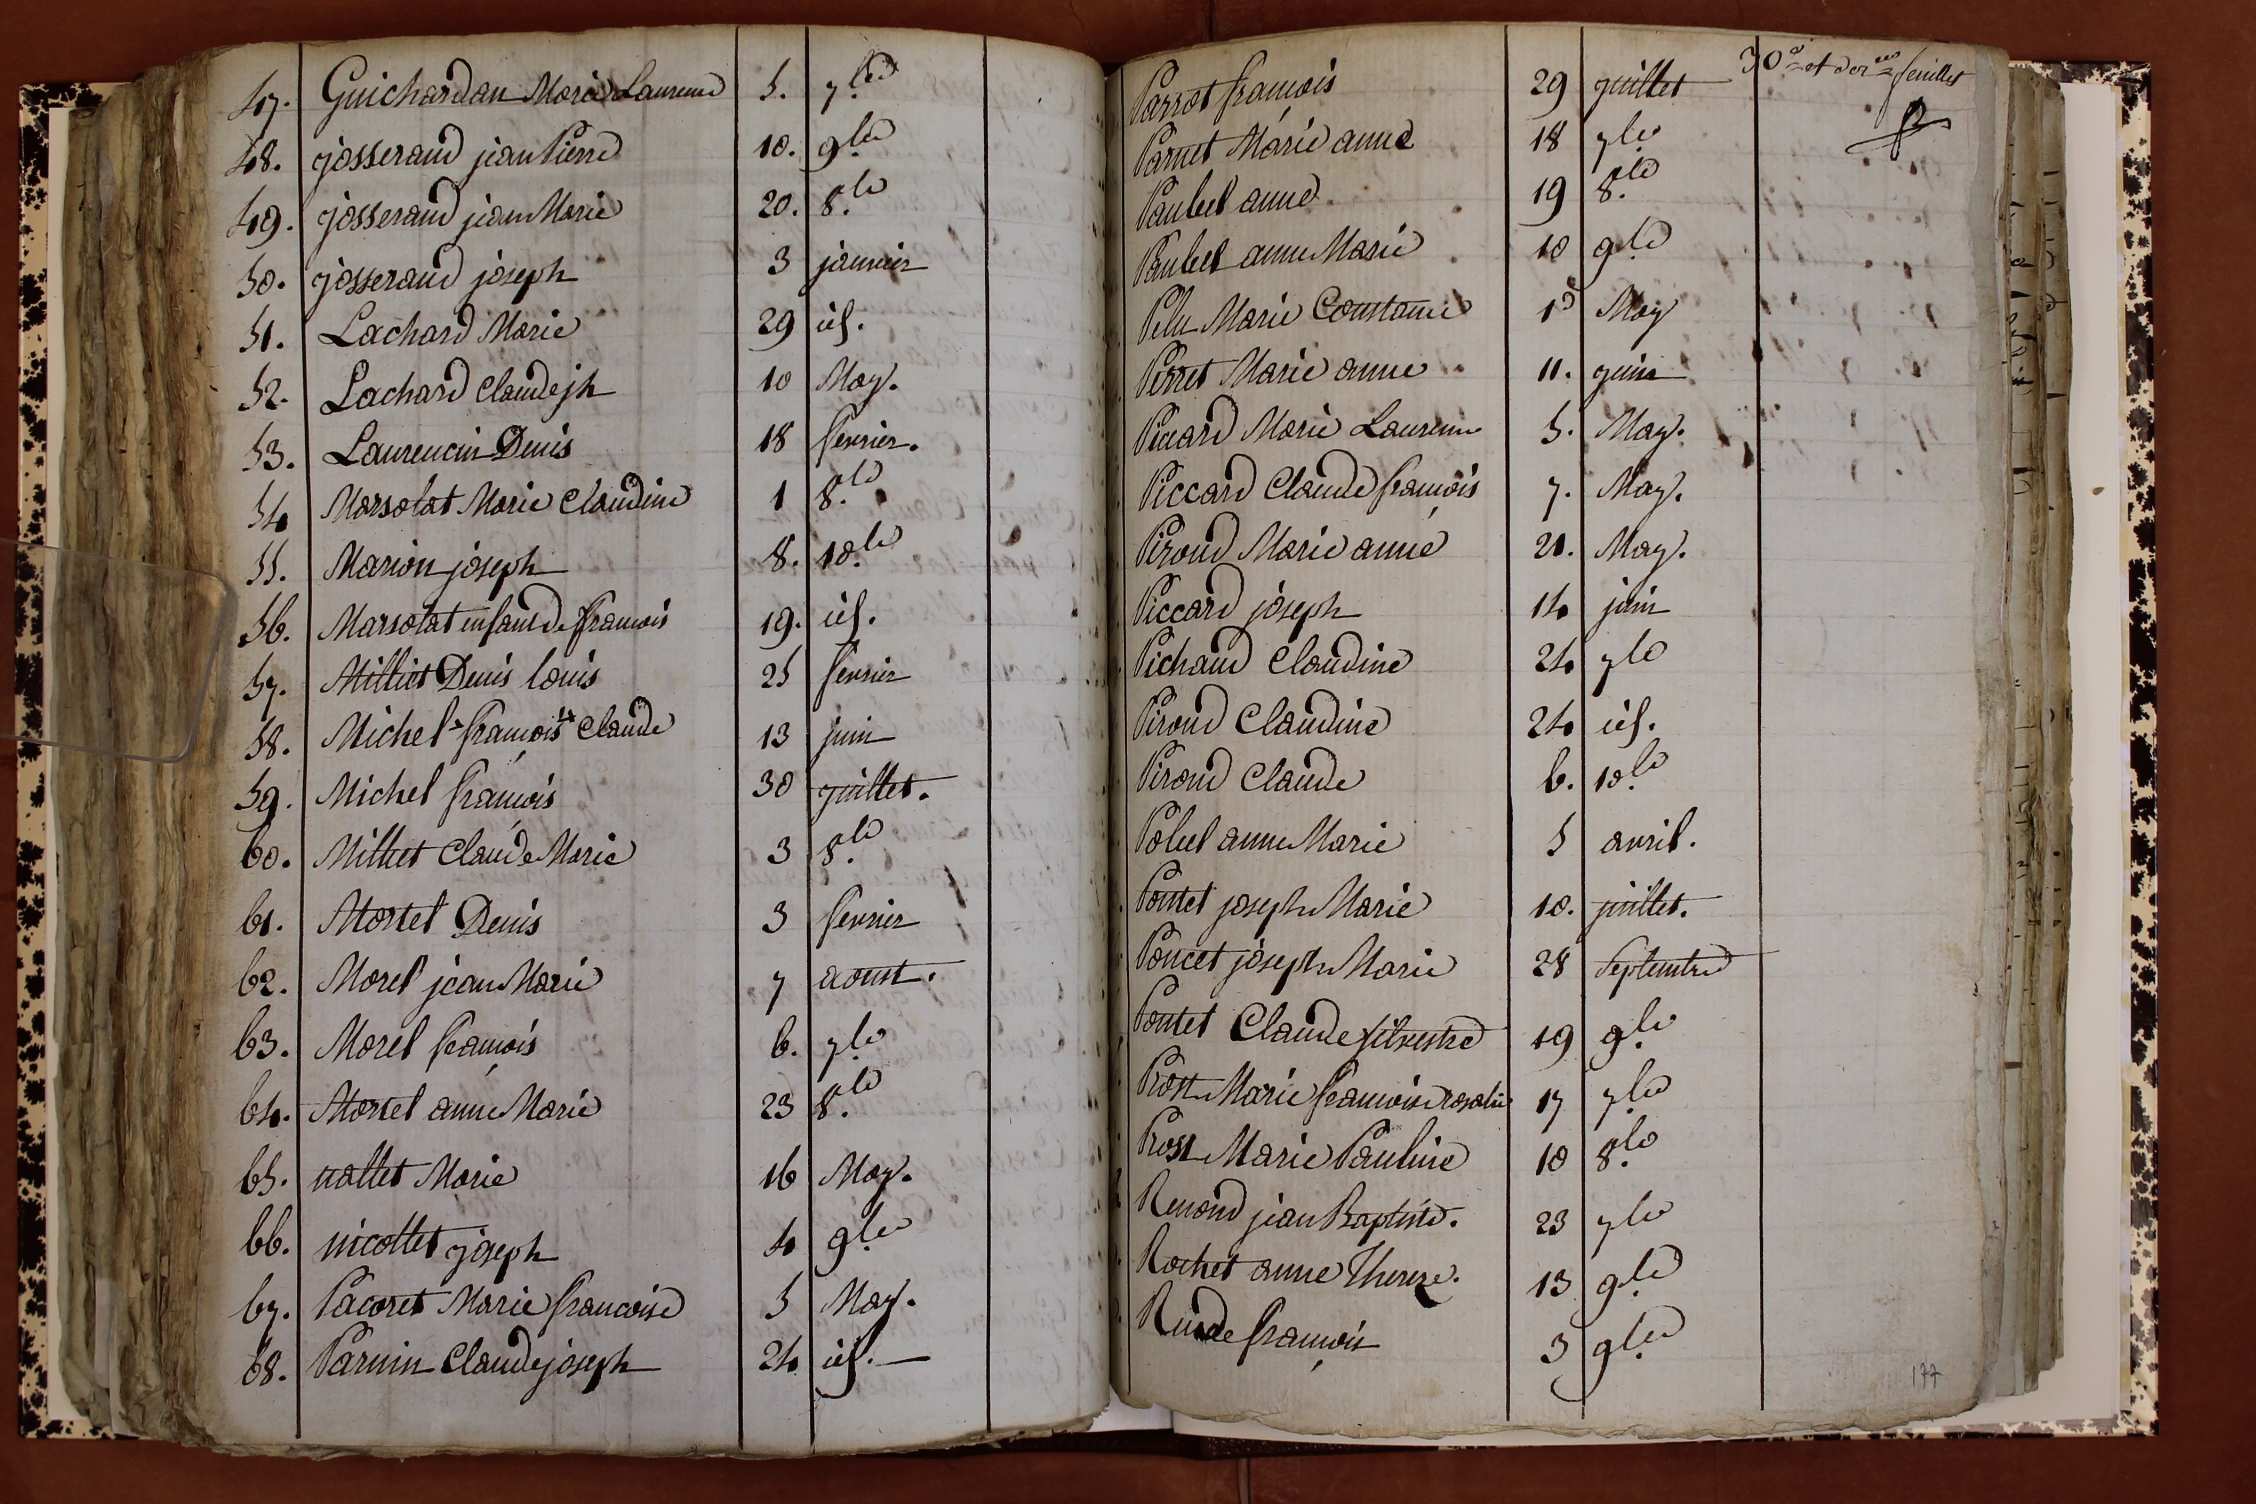 47. Guichardan Marie Laurence 5. 7bre
48. josserand jean Pierre 10. 9bre
49. josserand jean Marie 20. 8bre
50. josserand joseph 3 janvier
51. Lachard Marie 29 id.
52. Lachard Claude jh 10 May.
53. Laurencin Denis 18 fevrier.
54 Marsolat Marie Claudine 1 8bre
55. Marion joseph 8. 10bre
56. Marsolat enfant de francois 19. id.
57. Milliet Denis louis 25 fevrier
58. Michel francois Claude 13 juin
59. Michel françois 30 juillet.
60. Milliet Claude Marie 3 8bre
61. Mortel Denis 3 fevrier
62. Morel jean Marie 7 aoust.
63. Morel françois 6. 7bre
64. Mortel anne Marie 23 8bre
65. nallet Marie 16 May.
66. nicollet joseph 4 9bre
67. Pacoret Marie francoise 5 May.
68. Parnin Claude joseph 24 id.
30e et der.er feuillet
Parrot françois 29 juillet
Parnet Marie anne 18 7bre
Paubel anne 19 8bre
Paubel anne Marie 10 9bre
Marie Constance May
Perret Marie anne 11. juin
Piccard Marie Laurence 5. May.
Piccard Claude françois 7. May.
Piroud Marie anne 21. May.
Piccard joseph 14 juin
Pichaud Claudine 24 7bre
Piroud Claudine 24 id.
Piroud Claude 6. 10bre
Pobel anne Marie 5 avril.
Pontet joseph Marie 10. juillet.
Poncet joseph Marie 28 Septembre
Pontet Claude silvestre 19 9bre
Prost Marie francoise rosalie 17 7bre
Prost Marie Pauline 10 8bre
Renond jean Baptiste. 23 7bre
Rochet anne Thereze. 13 9bre
françois 3 9bre
177